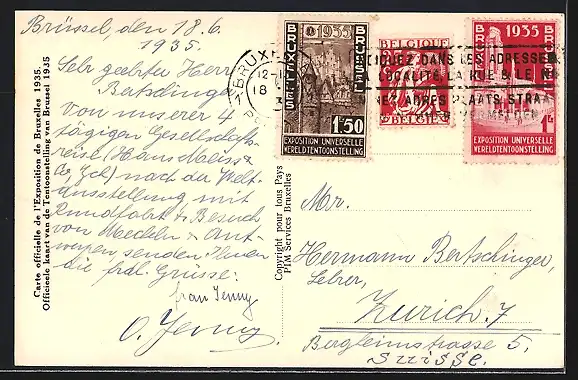 Brüssel, den 18.6.
1935.
Sehr geehrter Herr
Bertschinger
Von unserer 4
tägigen Gesellschafts-
reise (Hans Meiss &
Co, Zch) nach der Welt-
ausstellung mit
Rundfahrt & Besuch
von Mecheln & Ant-
werpen senden Ihnen
die frdl. Grüsse:
frau Jenny
O. Jenny.
Carte officielle de l'Exposition de Bruxelles 1935.
Officieele kaart van de Tentoonstelling van Brussel 1935
Copyright pour tous Pays
PIM Services Bruxelles
BRUX
12-
18
1935
BRUXELLES
BRUSSEL
1F50
EXPOSITION UNIVERSELLE
WERELDTENTOONSTELLING
BELGIQUE
BELGIË
1935
BRUXELLES
BRUSSEL
1F
EXPOSITION UNIVERSELLE
WERELDTENTOONSTELLING
IQUEZ DANS LES ADRESSES
LA LOCALITE, LA RUE & LE N°
ADRES PLAATS, STRAAT
Mr.
Hermann Bertschinger,
Lehrer,
Zurich. 7
Bergheimstrasse 5.
Suisse.